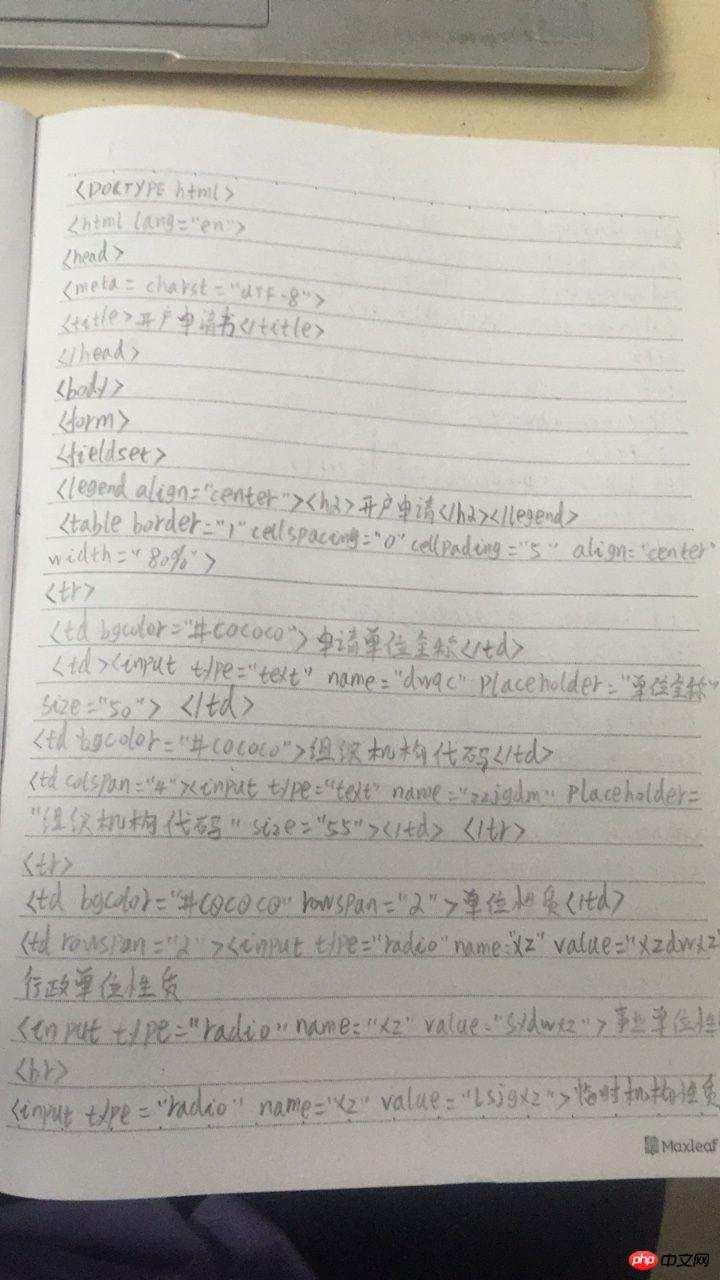 <DOCTYPE html>
<html lang="en">
<head>
<meta = charst = "UTF-8">
<title>开户申请书</title>
</head>
<body>
<form>
<fieldset>
<legend align="center"><h2>开户申请</h2></legend>
<table border="1" cellspacing="0" cellpading="5" align="center"
width="80%">
<tr>
<td bgcolor="#c0c0c0">申请单位全称</td>
<td><input type="text" name="dwqc" placeholder="单位全称"
size="50"> </td>
<td bgcolor="#c0c0c0">组织机构代码</td>
<td colspan="4"><input type="text" name="zzjgdm" placeholder=
"组织机构代码" size="55"></td> </tr>
<tr>
<td bgcolor="#c0c0c0" rowspan="2">单位性质</td>
<td rowspan="2"><input type="radio" name="xz" value="xzdwxz"
行政单位性质
<input type="radio" name="xz" value="sydwxz">事业单位性
<br>
<input type="radio" name="xz" value="lsjgxz">临时机构性质
Maxleaf
php 中文网